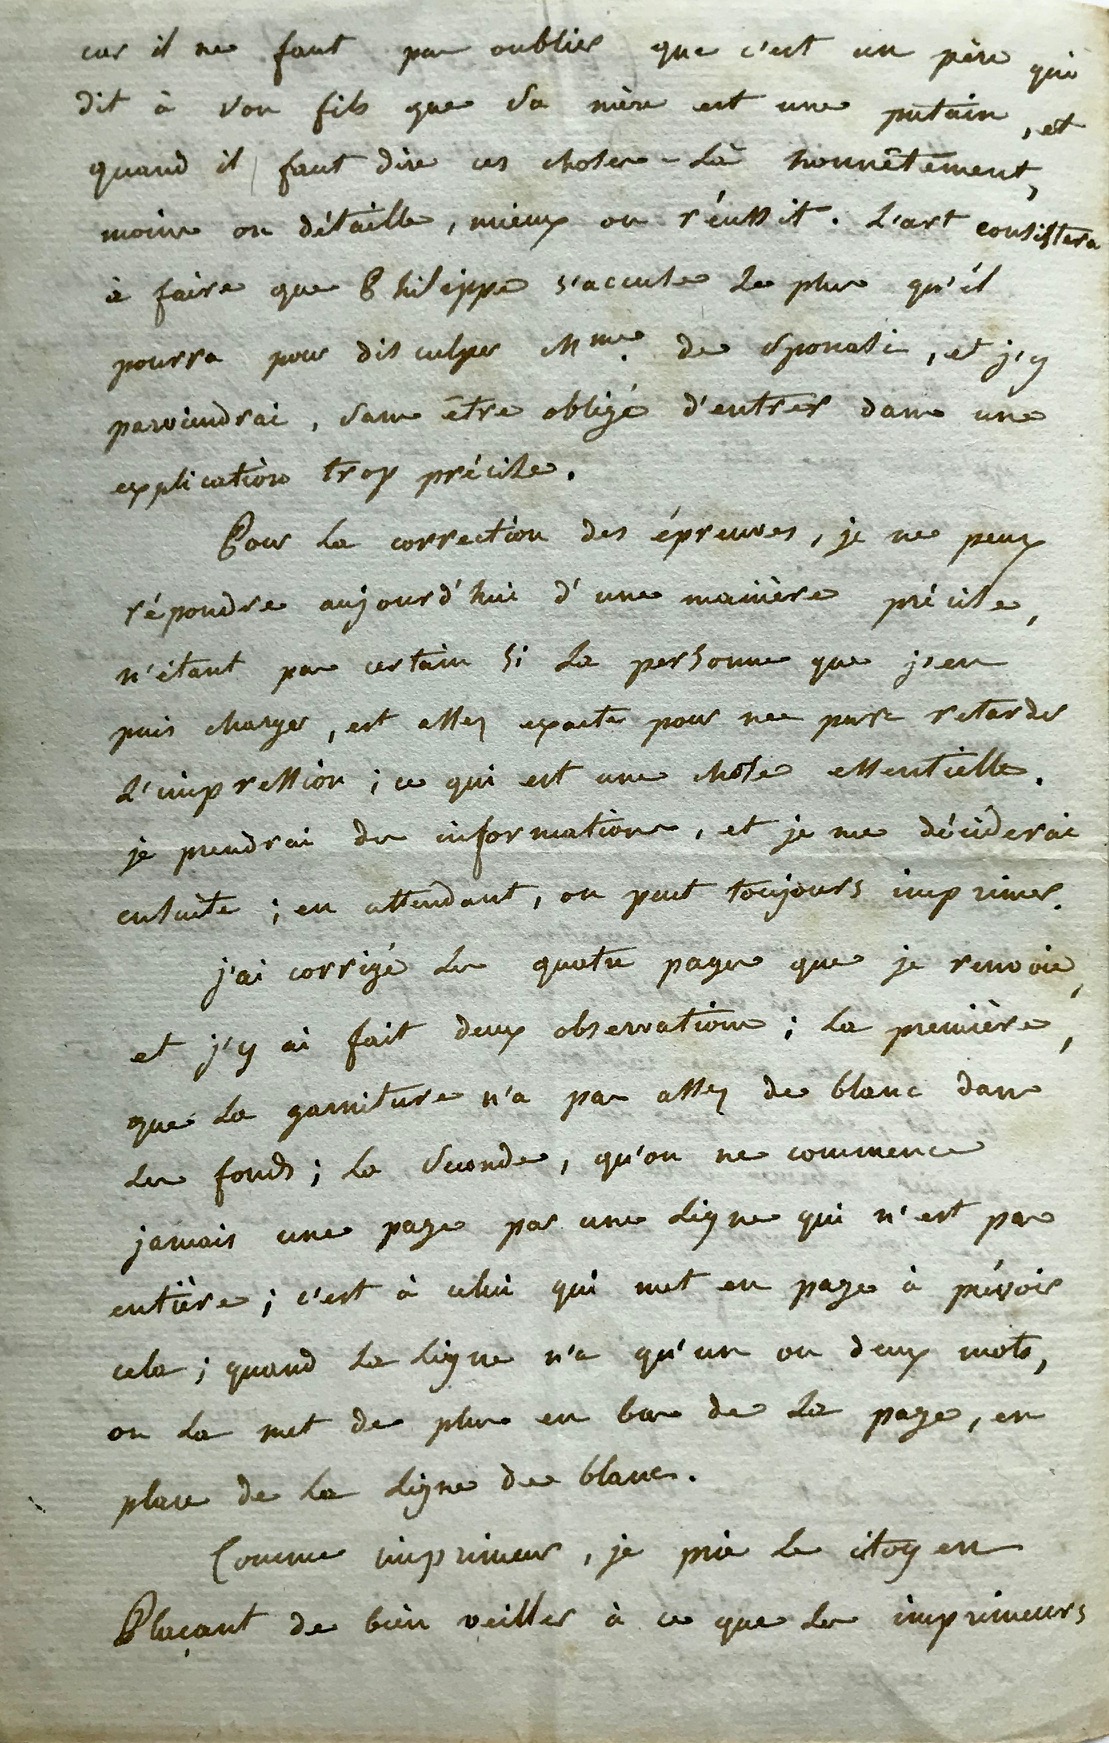 car il ne faut pas oublier que c'est un père qui
dit à son fils que sa mère est une putain, et
quand il faut dire ces choses-là honnêtement,
moins on détaille, mieux on réussit. L'art consistera
à faire que Philippe s'accuse le plus qu'il
pourra pour disculper Mme. de Sponasi, et j'y
parviendrai, sans être obligé d'entrer dans une
explication trop précise.
Pour la correction des épreuves, je ne peux
répondre aujourd'hui d'une manière précise,
n'étant pas certain si la personne que j'en
puis charger, est assez exacte pour ne pas retarder
l'impression ; ce qui est une chose essentielle.
je prendrai des informations, et je me déciderai
ensuite ; en attendant, on peut toujours imprimer.
j'ai corrigé les quatre pages que je renvoie,
et j'y ai fait deux observations ; la première,
que la garniture n'a pas assez de blanc dans
les fonds ; la seconde, qu'on ne commence
jamais une page par une ligne qui n'est pas
entière ; c'est à celui qui met en page à prévoir
cela ; quand la ligne n'a qu'un ou deux mots,
on la met de plus en bas de la page, en
place de la ligne de blanc.
Comme imprimeur, je prie le citoyen
Plaçant de bien veiller à ce que les imprimeurs